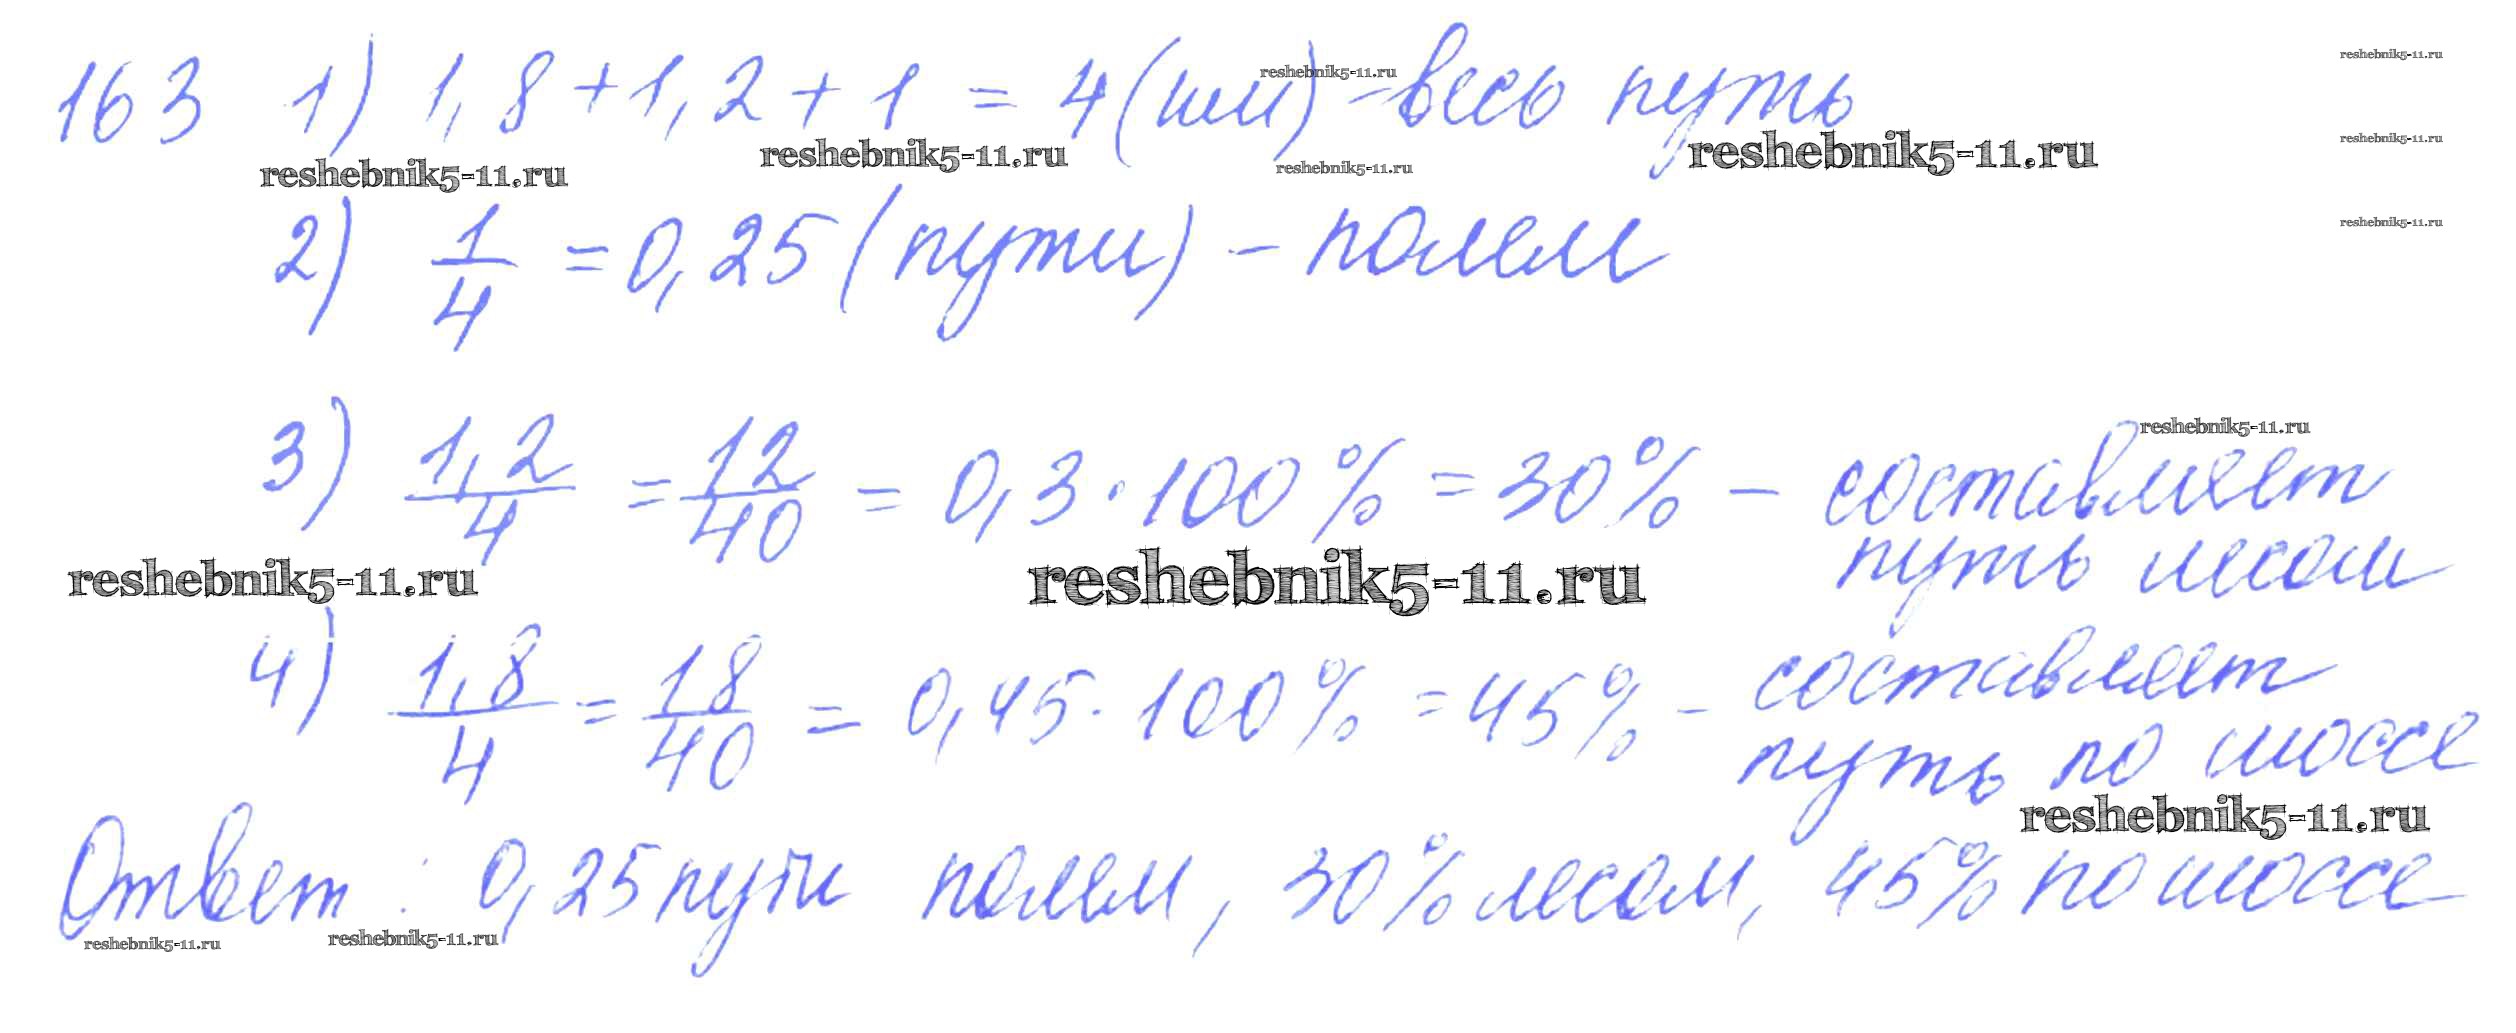 163 1) 1,8 + 1,2 + 1 = 4 (ми) - весь путь
reshebnik5-11.ru
reshebnik5-11.ru
reshebnik5-11.ru
reshebnik5-11.ru
reshebnik5-11.ru
reshebnik5-11.ru
reshebnik5-11.ru
2) 1/4 = 0,25 (пути) - полем
reshebnik5-11.ru
3) 1,2/4 = 12/40 = 0,3 · 100 % = 30 % - составляет
reshebnik5-11.ru
путь лесом
reshebnik5-11.ru
reshebnik5-11.ru
4) 1,8/4 = 18/40 = 0,45 · 100 % = 45 % - составляет
путь по шоссе
reshebnik5-11.ru
Ответ : 0,25 пути полем, 30 % лесом, 45 % по шоссе
reshebnik5-11.ru
reshebnik5-11.ru